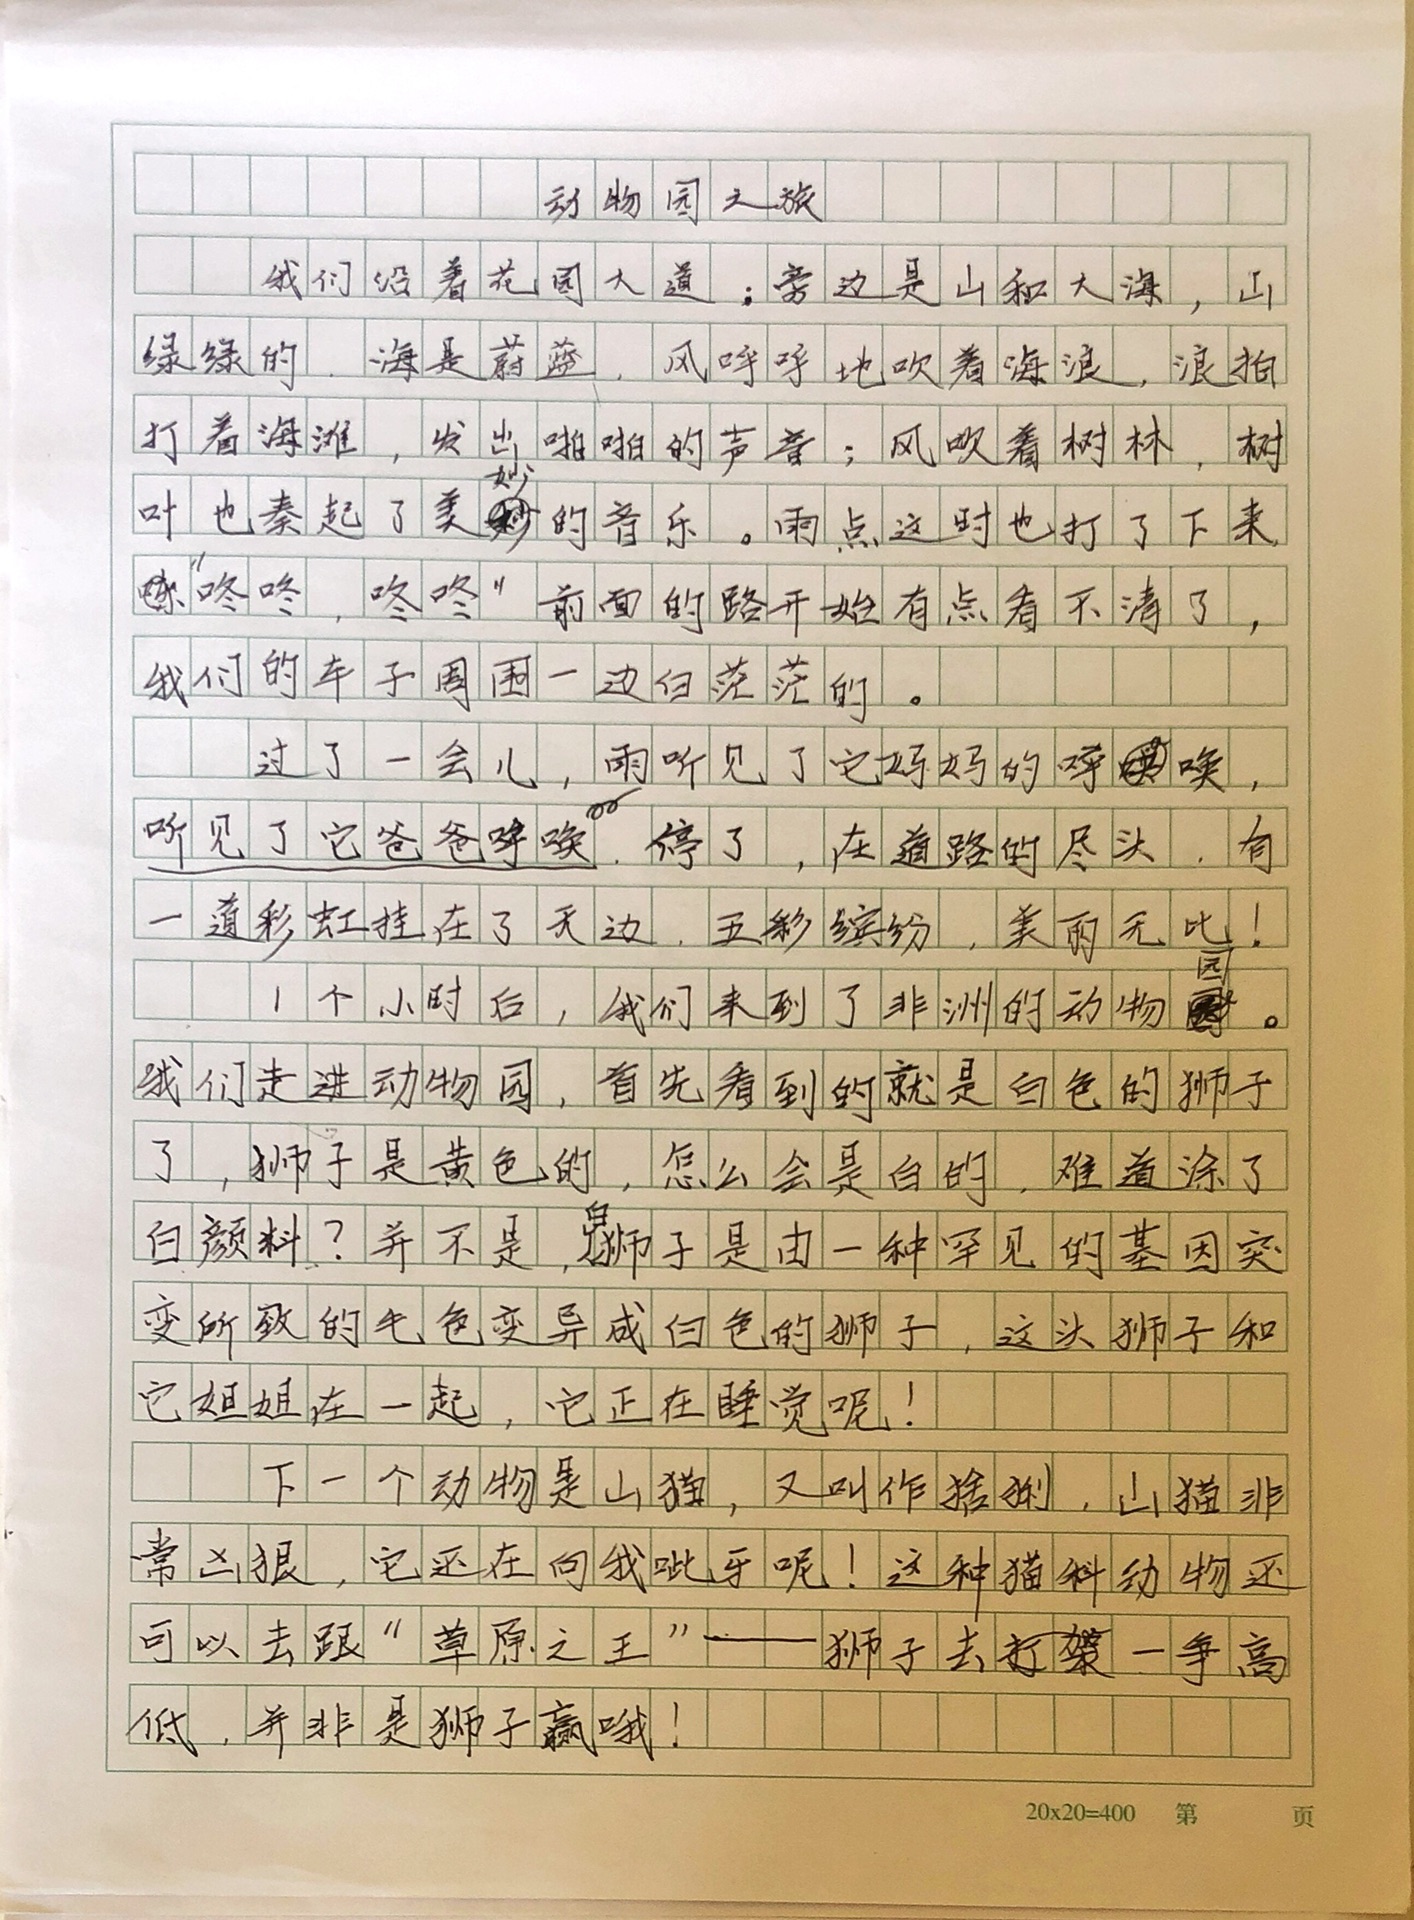 动物园之旅
我们沿着花园大道；旁边是山和大海，山
绿绿的，海是蔚蓝，风呼呼地吹着海浪，浪拍
打着海滩，发出啪啪的声音；风吹着树林，树
叶也奏起了美妙的音乐。雨点这时也打了下来
“咚咚，咚咚”前面的路开始有点看不清了，
我们的车子周围一边白茫茫的。
过了一会儿，雨听见了它妈妈的呼唤，
听见了它爸爸呼唤，停了，在道路的尽头，有
一道彩虹挂在了天边，五彩缤纷，美丽无比！
1个小时后，我们来到了非洲的动物园。
我们走进动物园，首先看到的就是白色的狮子
了，狮子是黄色的，怎么会是白的，难道涂了
白颜料？并不是，白狮子是由一种罕见的基因突
变所致的毛色变异成白色的狮子，这头狮子和
它姐姐在一起，它正在睡觉呢！
下一个动物是山猫，又叫作猞猁，山猫非
常凶狠，它还在向我呲牙呢！这种猫科动物还
可以去跟“草原之王”——狮子去打架一争高
低，并非是狮子赢哦！
20x20=400 第 页